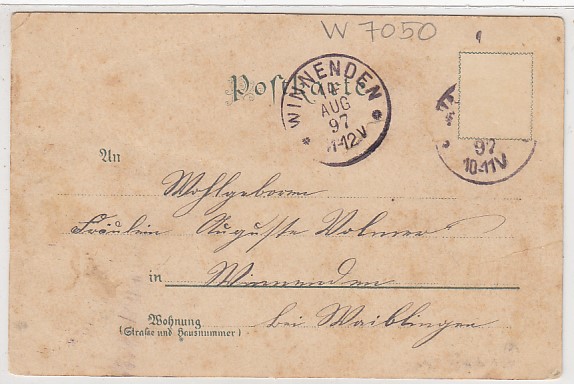 W 7050
Postkarte
WINNENDEN
AUG
97
11-12V
97
10-11V
An
Wohlgeboren
Fräulein Auguste Volmer
in Winnenden
Wohnung
(Straße und Hausnummer)
bei Waiblingen